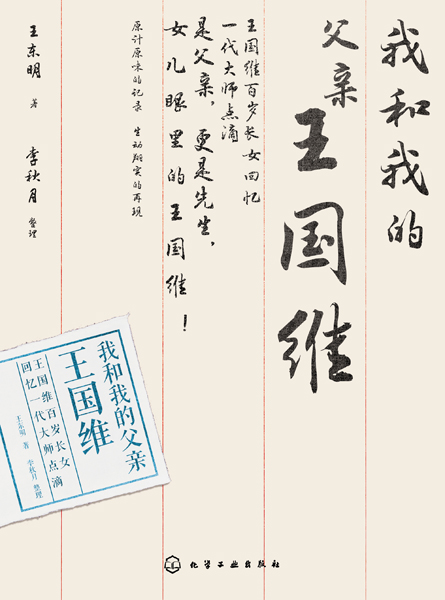 我和我的
父亲
王国维
王国维百岁长女回忆
一代大师点滴
是父亲，更是先生，
女儿眼里的王国维！
原汁原味的记录 生动翔实的再现
王东明 著 李秋月 整理
我和我的父亲
王国维
王国维百岁长女
回忆一代大师点滴
王东明 著 李秋月 整理
化学工业出版社